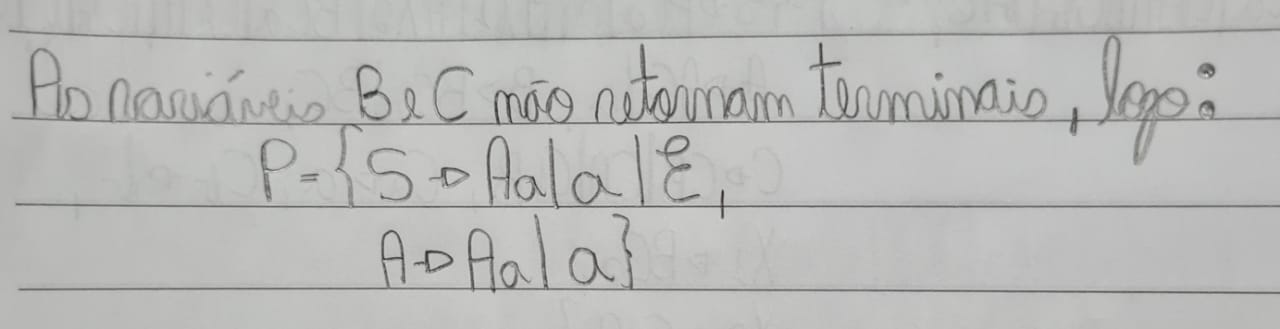 As variáveis B e C não retornam terminais, logo:
P={S→Aa|a|ε,
A→Aa|a}